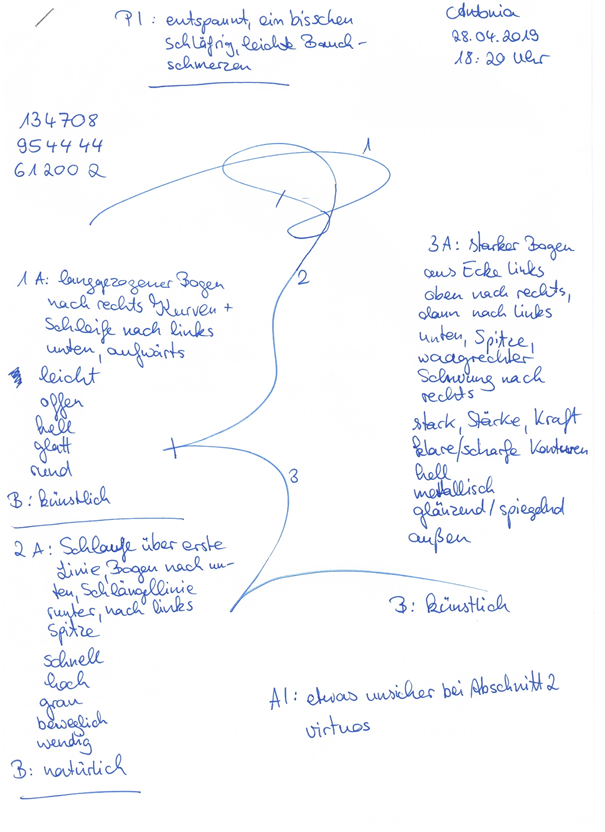 PI: entspannt, ein bisschen
schläfrig, leichte Bauch-
schmerzen
Antonia
28.04.2019
18:20 Uhr
134708
954444
612002
1
2
3
1 A: langgezogener Bogen
nach rechts, Kurven +
Schleife nach links
unten, aufwärts
leicht
offen
hell
glatt
rund
B: künstlich
2 A: Schlaufe über erste
Linie, Bogen nach un-
ten, Schlängellinie
runter, nach links
Spitze
schnell
hoch
grau
beweglich
wendig
B: natürlich
3A: starker Bogen
aus Ecke links
oben nach rechts,
dann nach links
unten, Spitze,
waagrechter
Schwung nach
rechts
stark, Stärke, Kraft
klare/scharfe Konturen
hell
metallisch
glänzend/spiegelnd
außen
B: künstlich
AI: etwas unsicher bei Abschnitt 2
virtuos